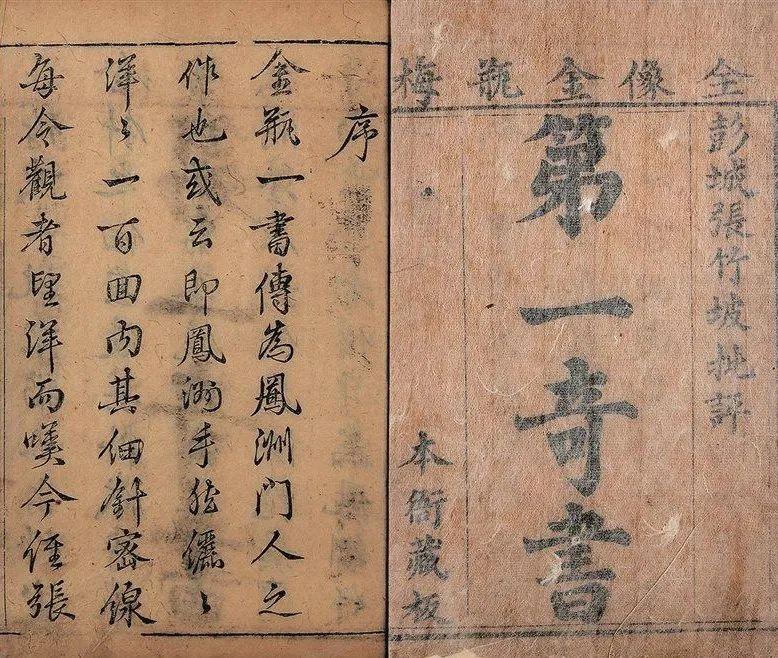 全像金瓶梅
彭城張竹坡批評
第一奇書
本衙藏板
序
金瓶一書傳為鳳洲門人之
作也或云即鳳洲手然纚〻
洋〻一百回内其细針密線
每令觀者望洋而嘆今経張